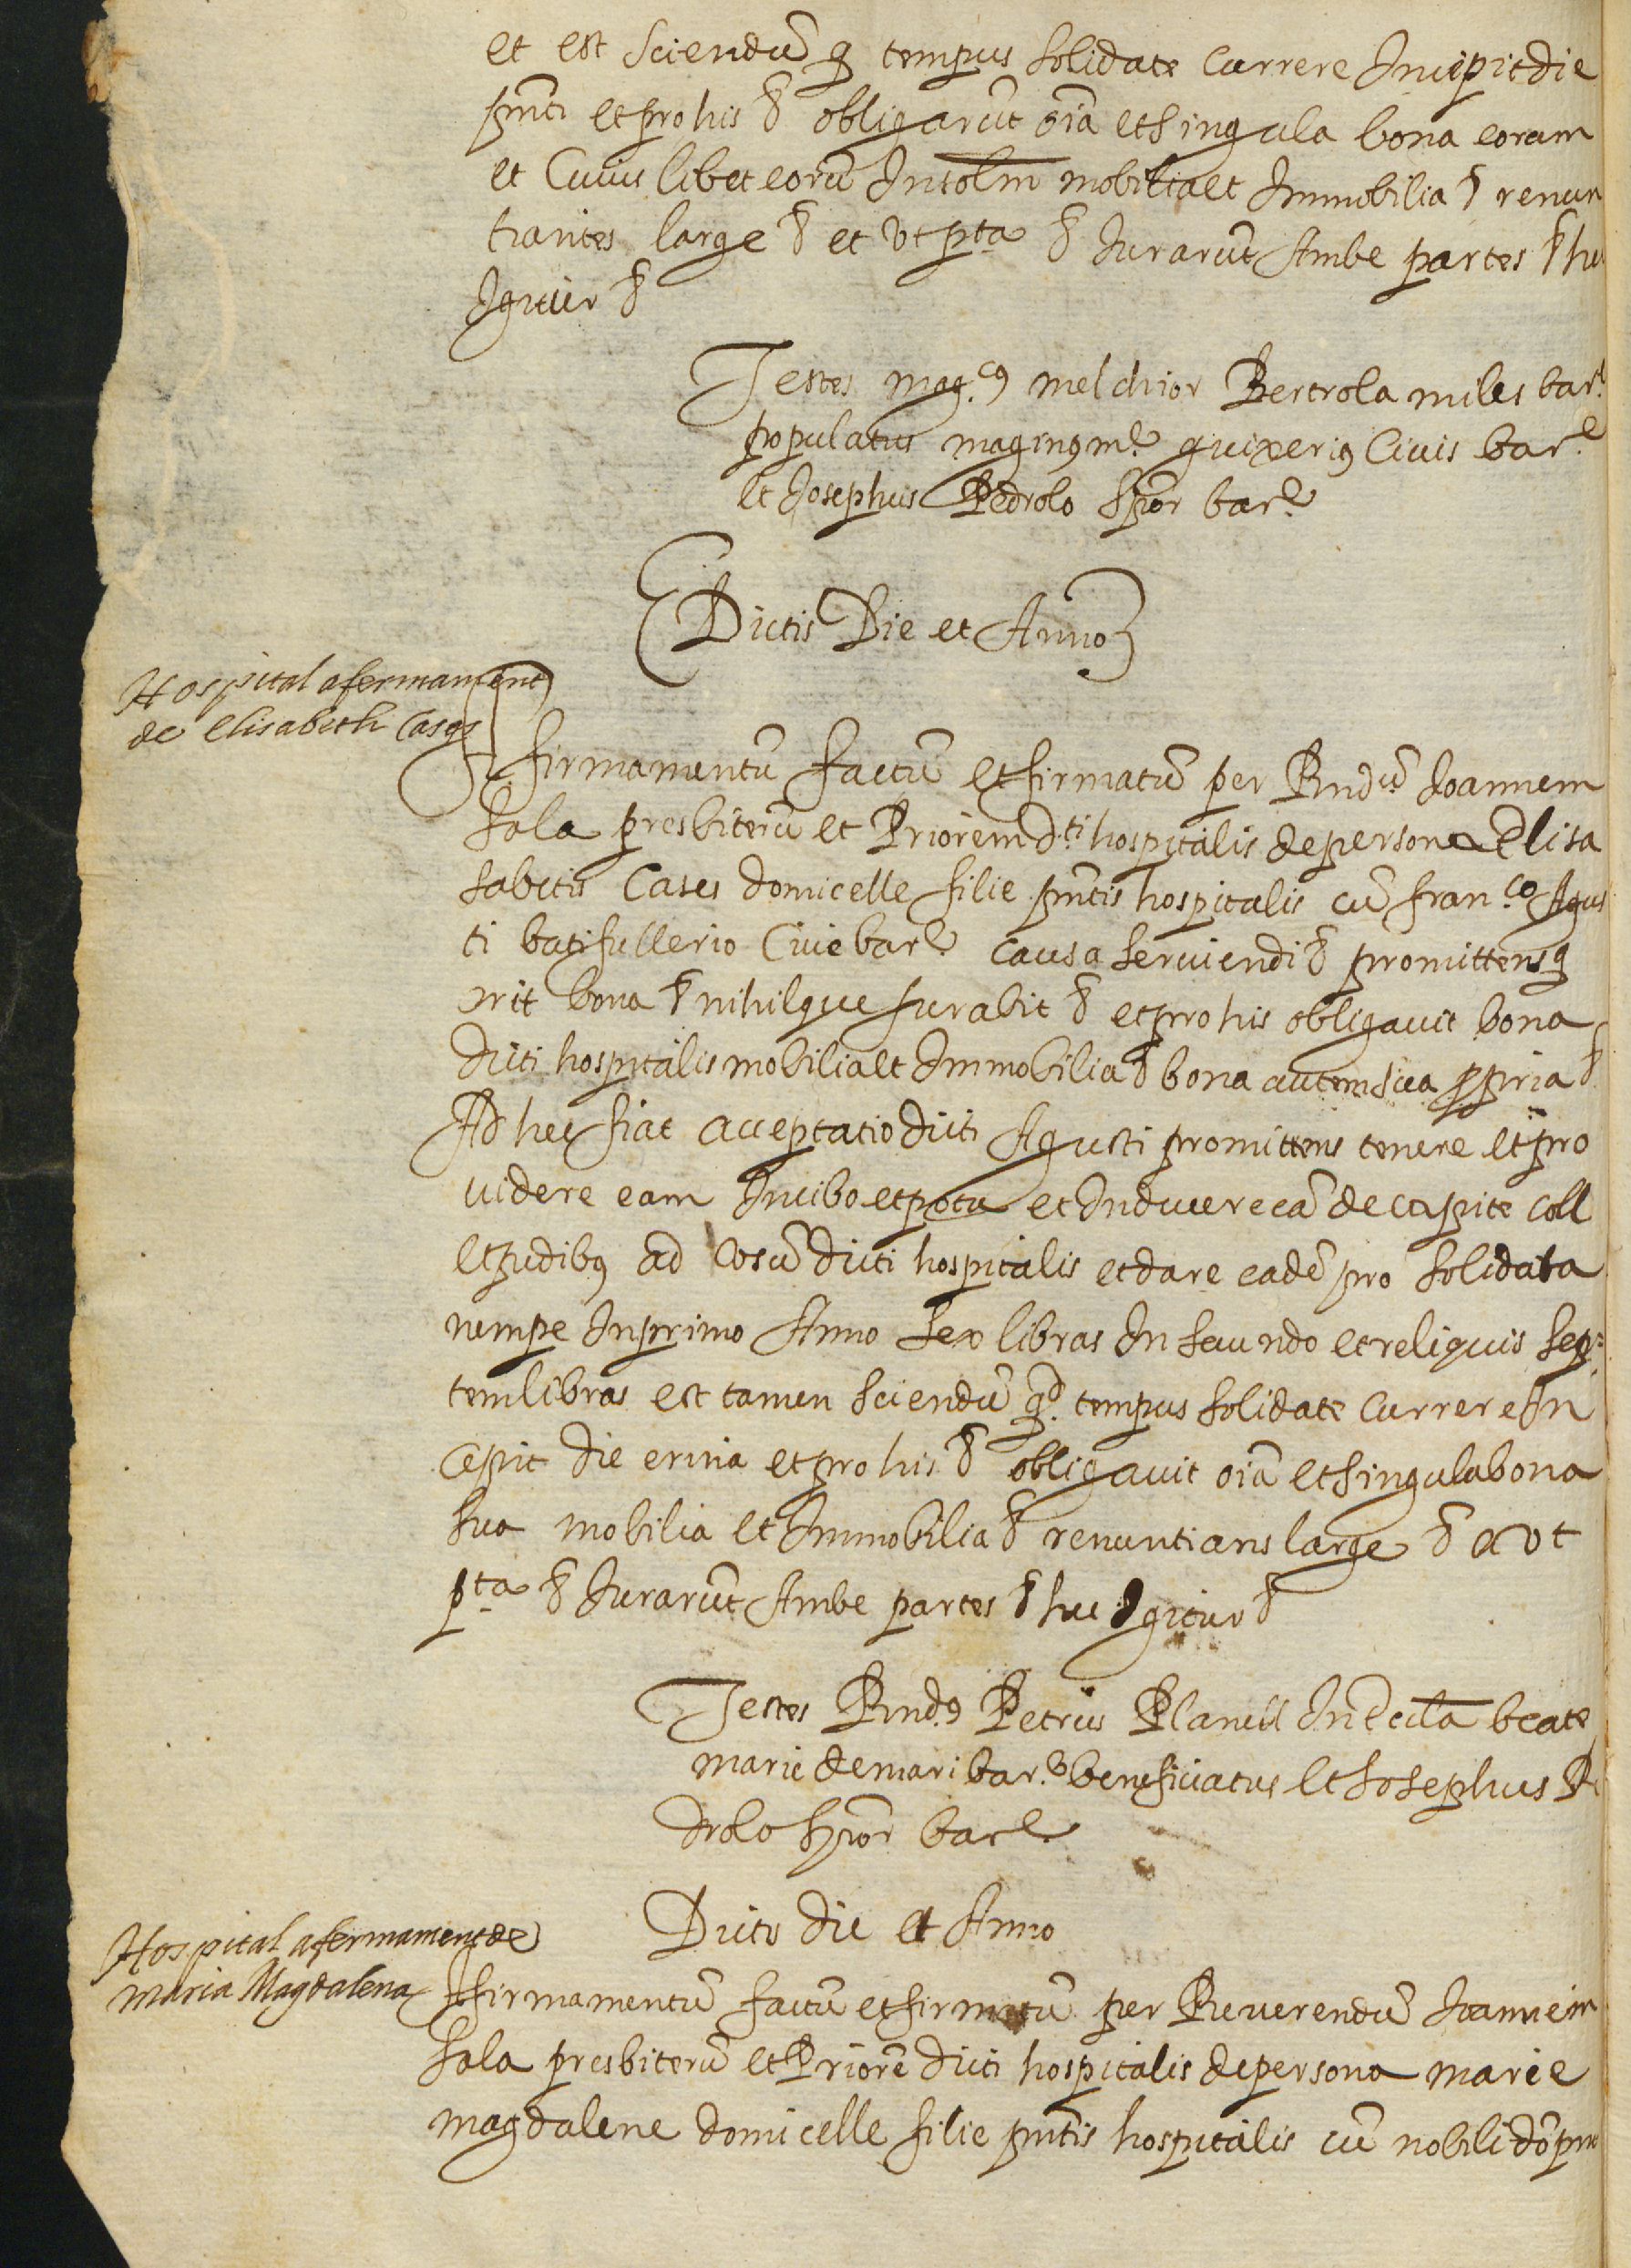 et est sciendũ q̃ tempus solidate currere Incipit die
pñti et pro his &̃ obligarũt oĩa et singula bona eorum
et cuius libet eorũ Insolm̃ mobilia et Immobilia &̃ renun
tiantes large &̃ et ut p.ta &̃ Jurarũt Ambe partes &̃ hec
Igitur &̃
Testes mag.cꝰ melchior Bertrola miles bar.e
populatus maginꝰ m.l guixeriꝰ Ciuis bar.e
et Josephus Pedrolo sc̃ior bar.e
Dictis Die et Anno
Hospital afermament
de elisabeth Casas
Affirmamentũ factũ et firmatũ per Rndũ. Joannem
Sola presbiterũ et Priorem d.ti hospitalis de persona Elisa
sabetis Cases domicelle filie pñtis hospitalis cũ fran.co Agus
ti batifullerio Ciue bar.e causa seruiendi &̃ promittens q̃
erit bona &̃ nihilque furabit &̃ et pro his obligauit bona
dicti hospitalis mobilia et Immobilia &̃ bona autem sua ꝓpria &̃
Ad hec fiat acceptatio dicti Agusti promittens tenere et pro
uidere eam In cibo et potu et Induere eã de capite coll
et pedibꝰ ad cosũ dicti hospitalis et dare eadẽ pro solidata
nempe In primo Anno sex libras In secundo et reliquis sep=
tem libras est tamen sciendũ q.d tempus solidate currere In
cepit die erina et pro his &̃ obligauit oĩa et singula bona
sua mobilia et Immobilia &̃ renuntians large &̃ a ut
p.ta &̃ Jurarũt Ambe partes &̃ hec Igitur &̃
Testes Rnd.ꝰ Petrus Planell In Eccl̃a beate
marie de mari bar.e beneficiatus et Josephus Pe
drolo sc̃ior bar.e
Dicto die et Anno
Hospital afermament de
maria Magdalena
Affirmamentũ factũ et firmatũ per Reuerendũ Joannem
Sola presbiterũ et Priorẽ dicti hospitalis de persona marie
magdalene domicelle filie pñtis hospitalis cũ nobili dõ